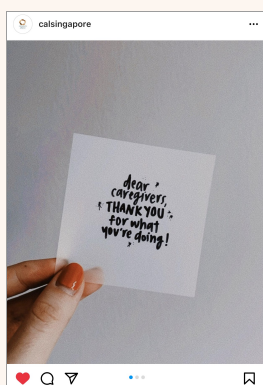 calsingapore
dear
caregivers,
THANK YOU
for what
you're doing!